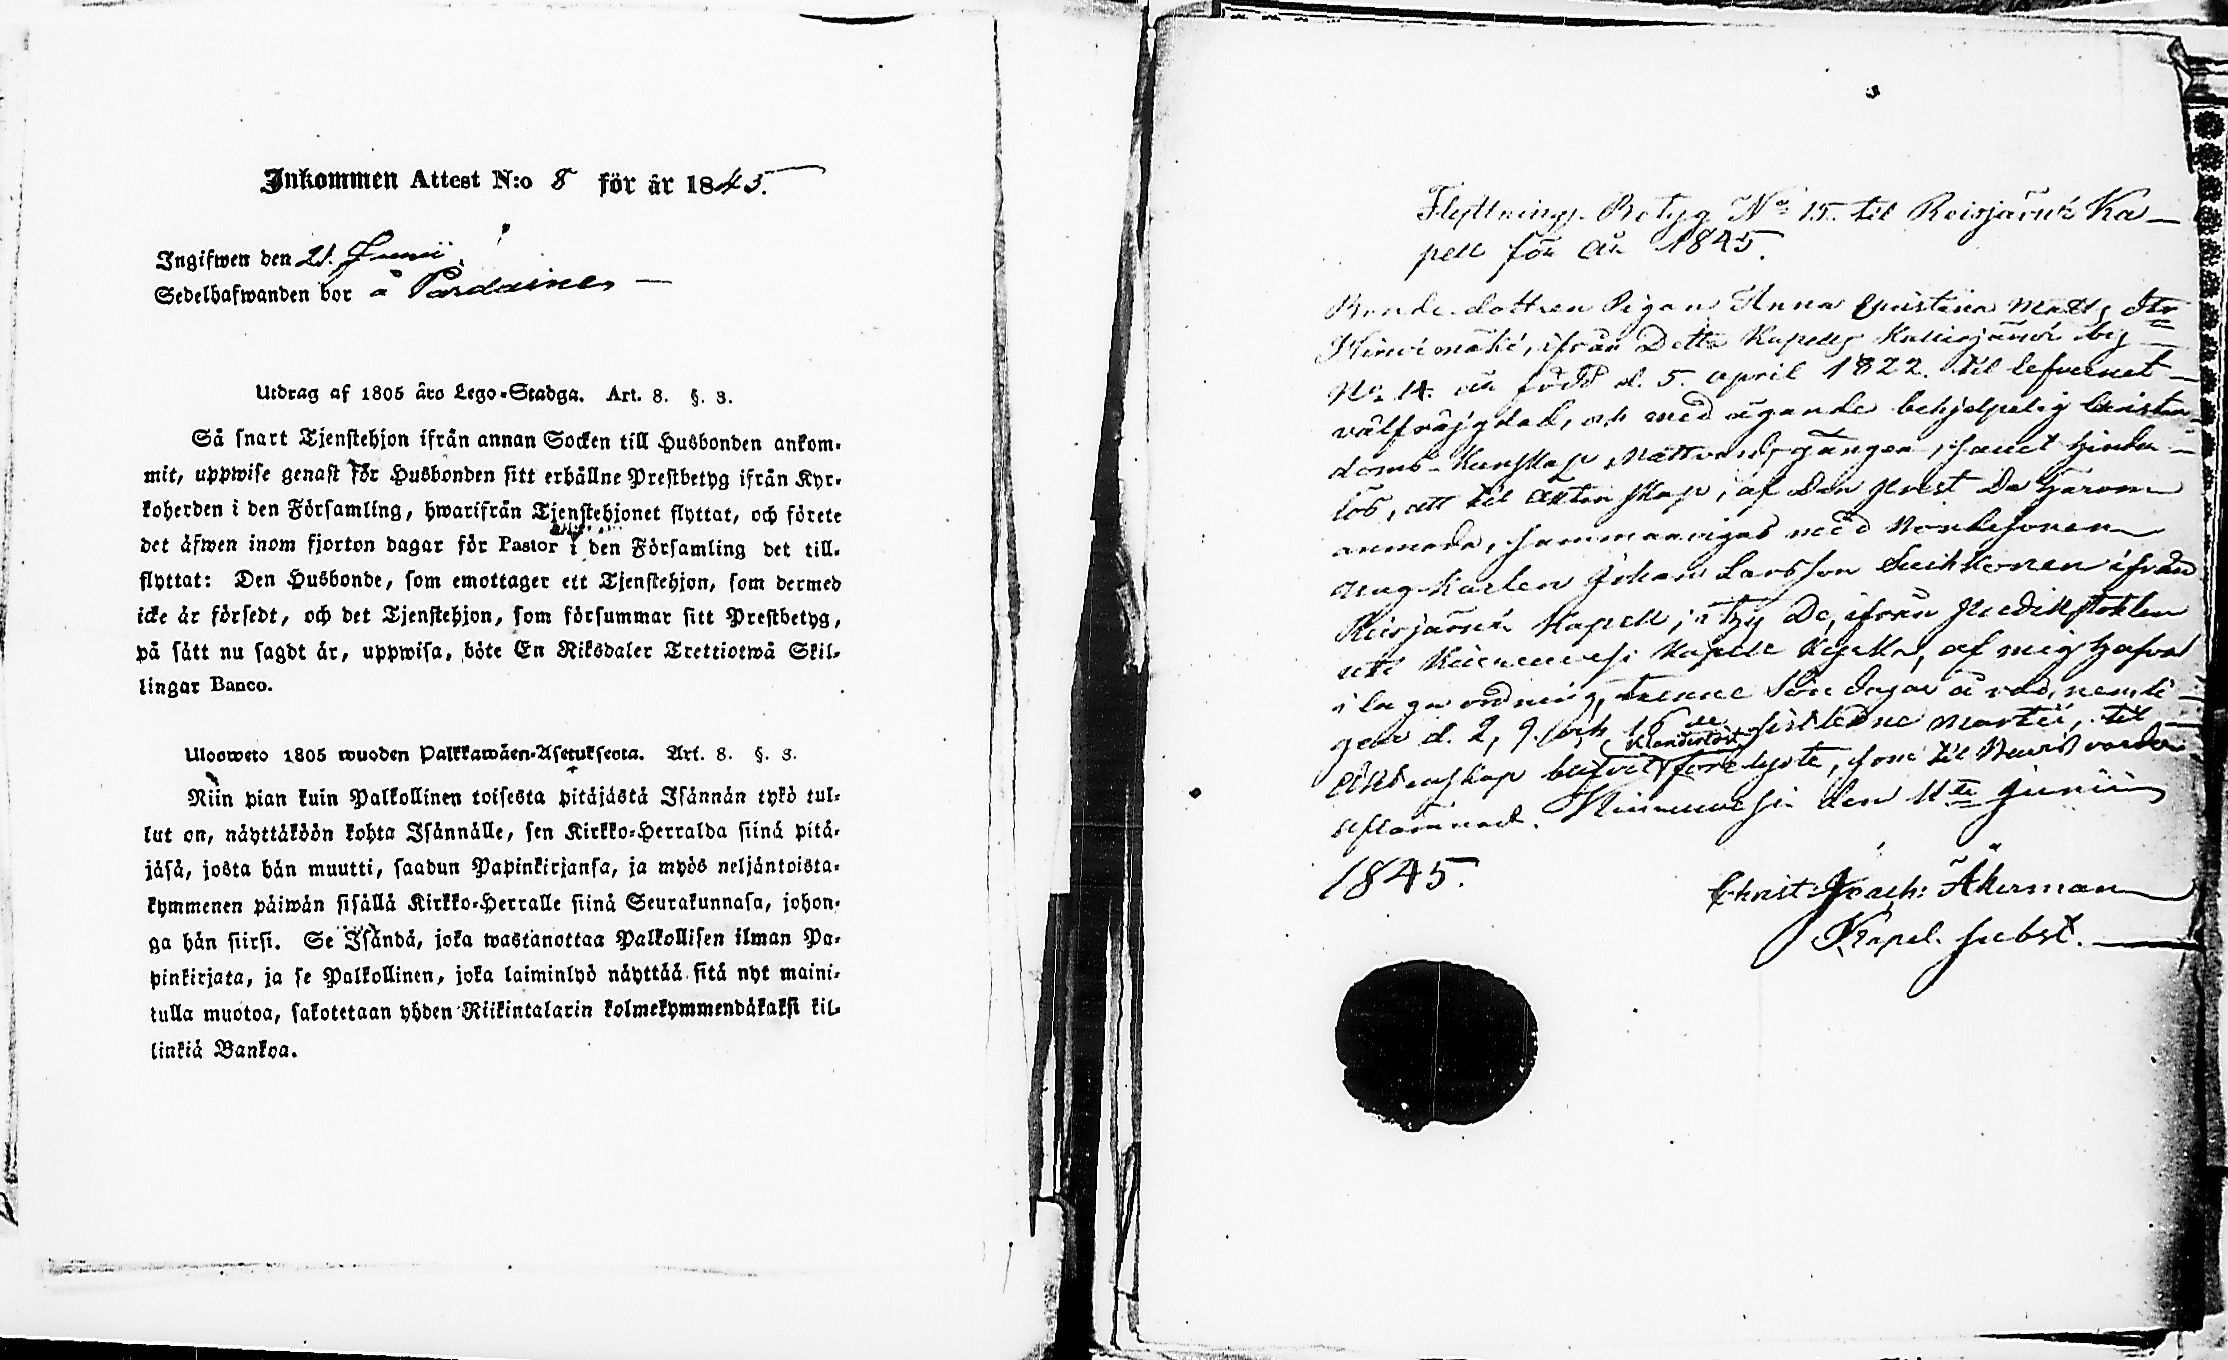 Inkommen Attest N:o 8 för år 1845.
Ingifwen den 21. Junii
Sedelhafwanden bor å Pardaines
Utdrag af 1805 åro Lego-Stadga. Art. 8. §. 3.
Så snart Tjenstehjon ifrån annan Socken till Husbonden ankom-
mit, uppwise genast för Husbonden sitt erhållne Prestbetyg ifrån Kyr-
koherden i den Församling, hwarifrån Tjenstehjonet flyttat, och förete
det äfwen inom fjorton dagar för Pastor i den Församling det till-
flyttat: Den Husbonde, som emottager ett Tjenstehjon, som dermed
icke är försedt, och det Tjenstehjon, som försummar sitt Prestbetyg,
på sätt nu sagdt är, uppwisa, böte En Riksdaler Trettiotwå Skil-
lingar Banco.
Ulosweto 1805 wuoden Palkkawäen-Asetuksesta. Art. 8. §. 3.
Niin pian kuin Palkollinen toisesta pitäjästä Isännän tykö tul-
lut on, näyttäköön kohta Isännälle, sen Kirkko-Herralda siinä pitä-
jäsä, josta hän muutti, saadun Papinkirjansa, ja myös neljäntoista-
kymmenen päiwän sisällä Kirkko-Herralle siinä Seurakunnasa, johon-
ga hän siirsi. Se Isändä, joka wastanottaa Palkollisen ilman Pa-
pinkirjata, ja se Palkollinen, joka laiminlyö näyttää sitä nyt maini-
tulla muotoa, sakotetaan yhden Riikintalarin kolmekymmendäkaksi kil-
linkiä Bankoa.
Flyttnings-Betyg No 15. til Reisjärvi Ka-
pell för år 1845.
Bonde-dottren Pigan Anna Christina Matts dtr
Hirvimäki, ifrån Detta Kapells by
No 14. är född d. 5. april 1822. til lefvernet
välfräjgdad, och med ägande behjelpelig Christen-
doms-Kunskap, Nattvards gången, samt hinder-
lös, att til äktenskap, af den Prest De härom
anmoda, sammanvigas med Bondesonen
ung Karlen Johan Larsson ifrån
Reisjärvi Kapell; ty De, ifrån Predikstolen
uti Kapells Kyrka, af mig hafva
i laga ordning, trenne Söndagar å rad, nemli-
gen d. 2, 9. och 16de sistledne Martii, til
Äktenskap blifvit klanderlöst förelyste, som til Bevis varder
d. den 11te Junii
1845.
Christ: Joach: Åkerman
Kapel. subst.